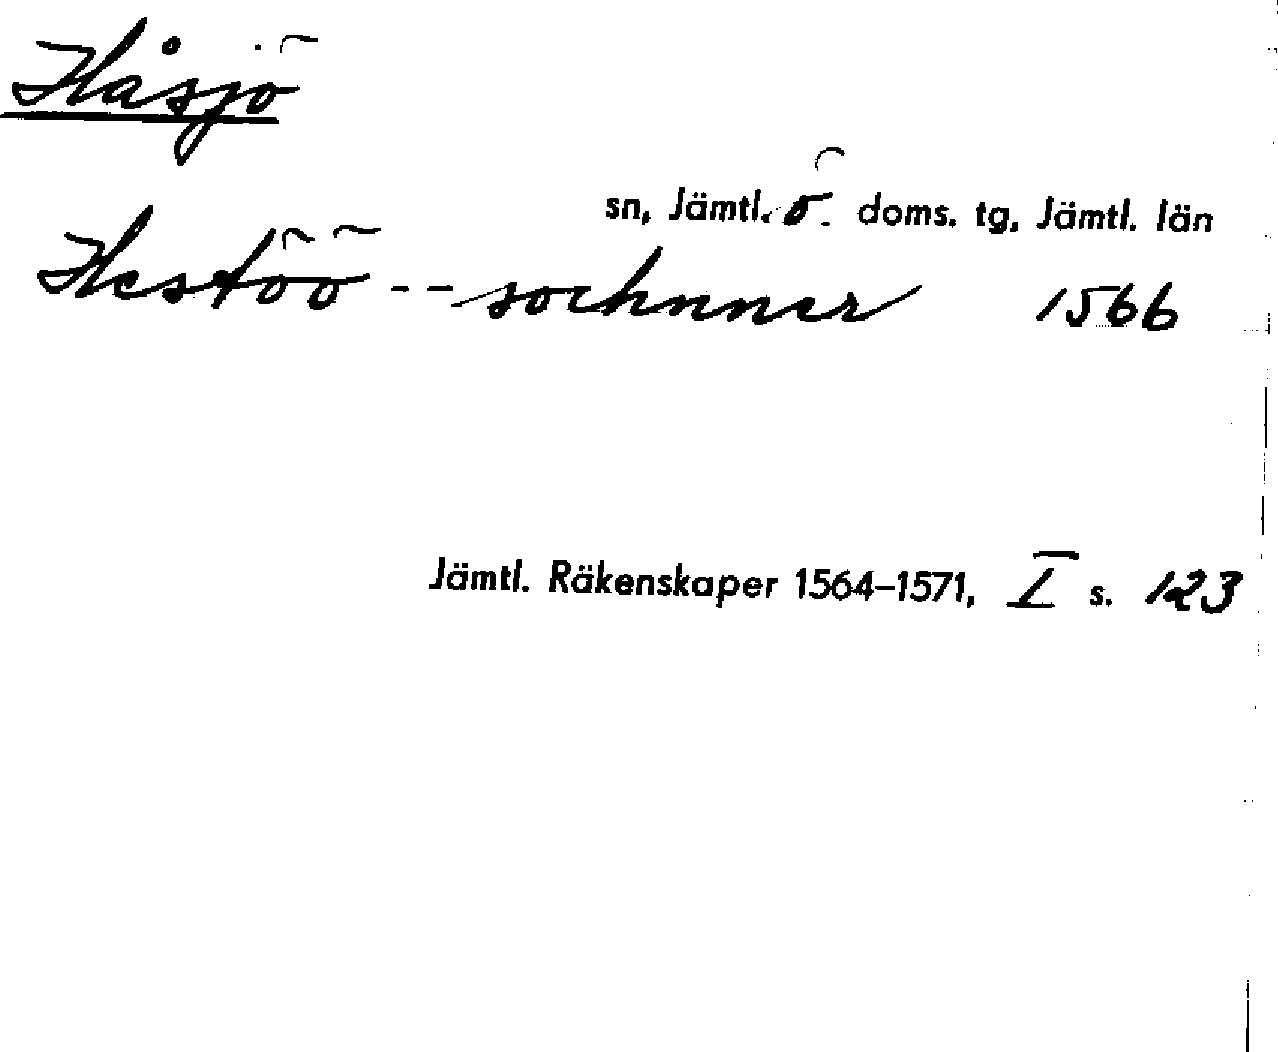 Håsjö
sn, Jämtl. ö. doms. tg, Jämtl. län
Hestöö -- sochnner 1566
Jämtl. Räkenskaper 1564–1571, I s. 123